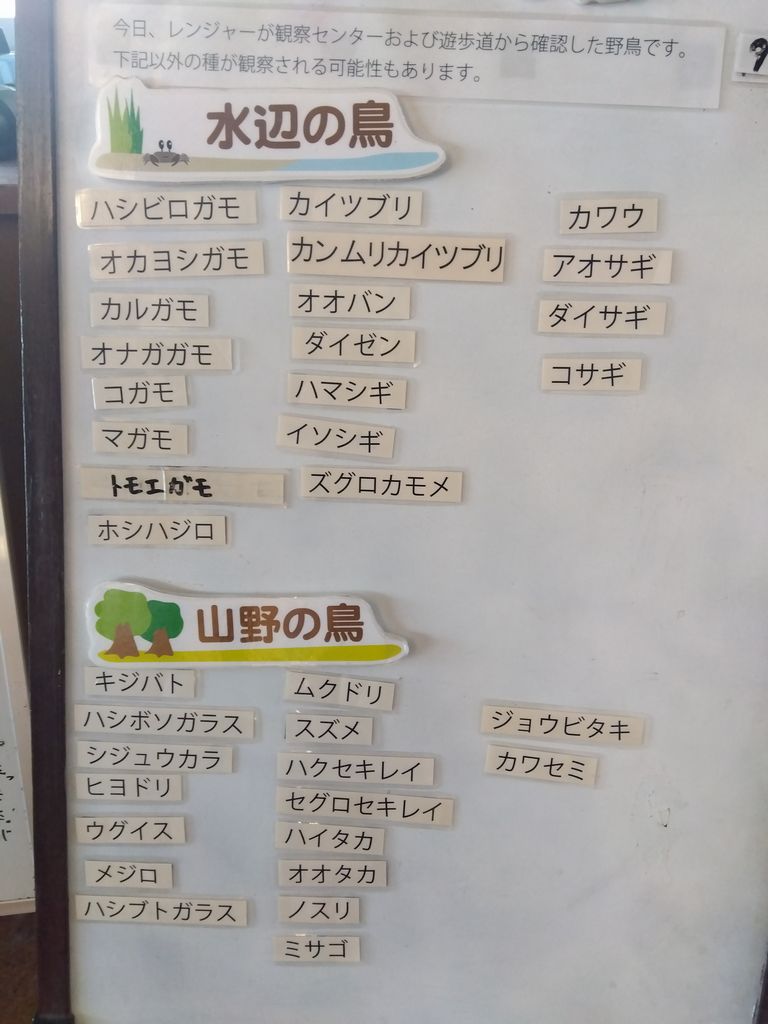 今日、レンジャーが観察センターおよび遊歩道から確認した野鳥です。
下記以外の種が観察される可能性もあります。
水辺の鳥
ハシビロガモ
オカヨシガモ
カルガモ
オナガガモ
コガモ
マガモ
トモエガモ
ホシハジロ
カイツブリ
カンムリカイツブリ
オオバン
ダイゼン
ハマシギ
イソシギ
ズグロカモメ
カワウ
アオサギ
ダイサギ
コサギ
山野の鳥
キジバト
ハシボソガラス
シジュウカラ
ヒヨドリ
ウグイス
メジロ
ハシブトガラス
ムクドリ
スズメ
ハクセキレイ
セグロセキレイ
ハイタカ
オオタカ
ノスリ
ミサゴ
ジョウビタキ
カワセミ